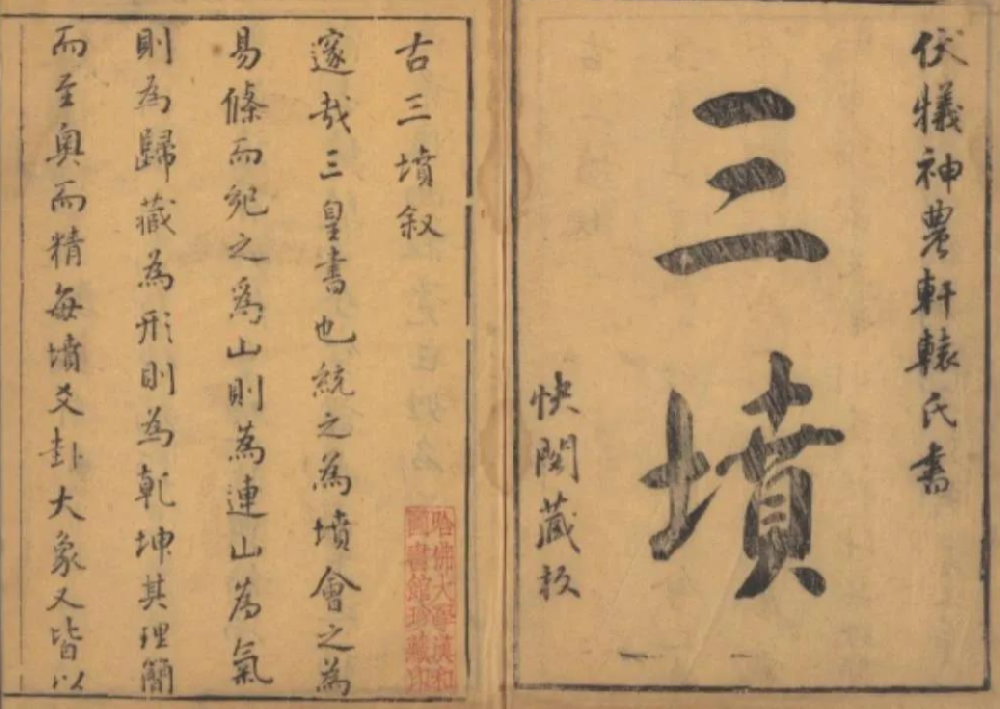 伏犧神農軒轅氏書
三墳
快閣藏板
古三墳叙
邃哉三皇書也統之為墳會之為
易條而之為山則為連山為氣
則為歸藏為形則為乾坤其理簡
而至奧而精每墳爻卦大象又皆以
哈佛大學漢和
圖書館珍藏印